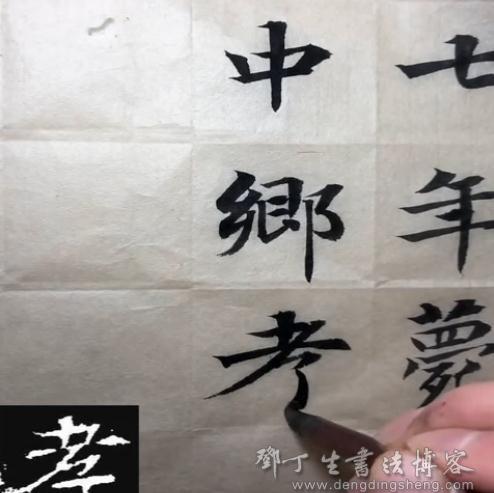 七年夢
中鄉孝
孝
鄧丁生書法博客
www.dengdingsheng.com